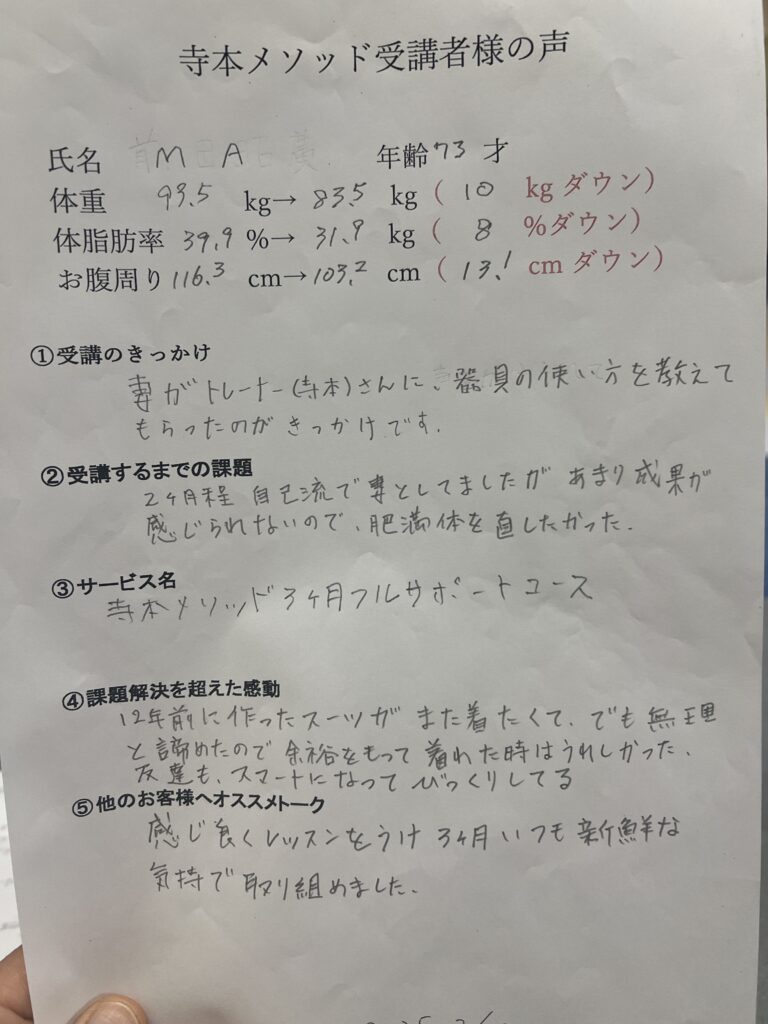 寺本メソッド受講者様の声
氏名 M A 年齢 73 才
体重 93.5 kg→ 83.5 kg ( 10 kg ダウン)
体脂肪率 39.9 %→ 31.9 kg ( 8 %ダウン)
お腹周り 116.3 cm→103.2 cm ( 13.1 cm ダウン)
①受講のきっかけ
妻がトレーナー(寺本)さんに、器具の使い方を教えて
もらったのがきっかけです.
②受講するまでの課題
2ヶ月程 自己流で妻としてましたが あまり成果が
感じられないので、肥満体を直したかった.
③サービス名
寺本メソッド3ヶ月フルサポートコース
④課題解決を超えた感動
12年前に作ったスーツがまた着たくて、でも無理
と諦めたので余裕をもって着れた時はうれしかった.
友達も、スマートになってびっくりしてる
⑤他のお客様へオススメトーク
感じ良くレッスンをうけ3ヶ月いつも新鮮な
気持で取り組めました.